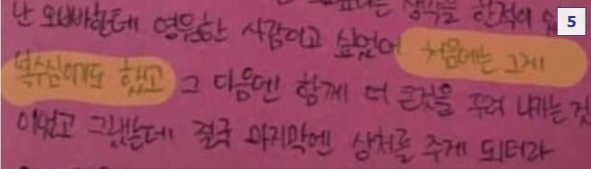 5
생각을 한적이
난 오빠한테 영원한 사람이고 싶었어 처음에는 그게
복수심이기도 했고 그 다음엔 함께 더 큰것을 꾸려 나가는 것
이었고 그랬는데 결국 마지막엔 상처를 주게 되더라